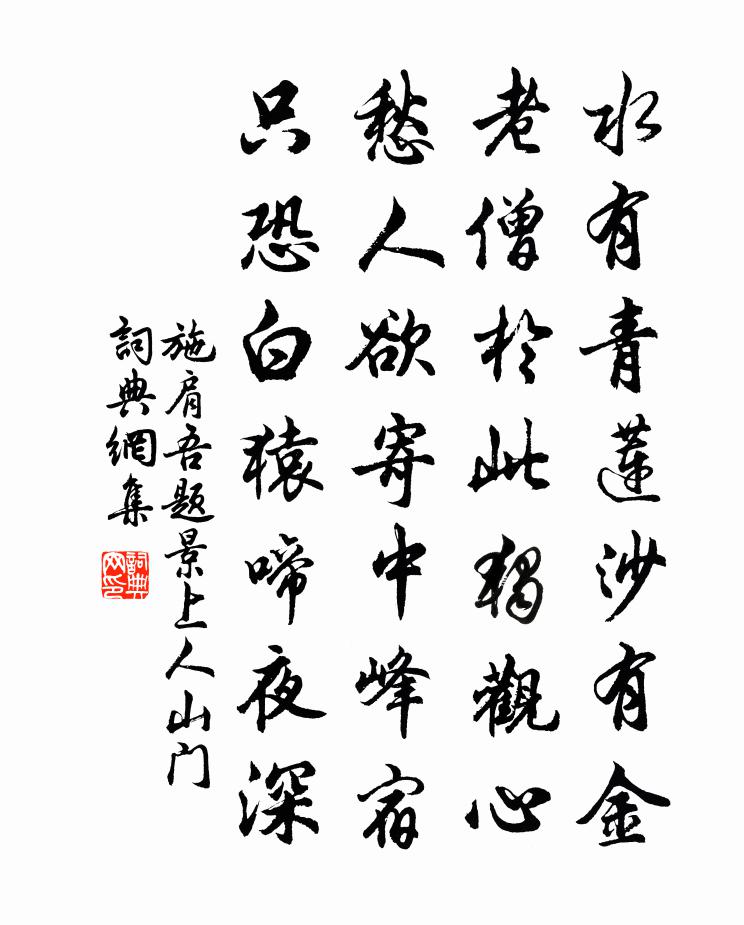 水有青蓮沙有金
老僧於此獨觀心
愁人欲寄中峰宿
只恐白猿啼夜深
施肩吾题景上人山门
詞典網集
詞典
网印